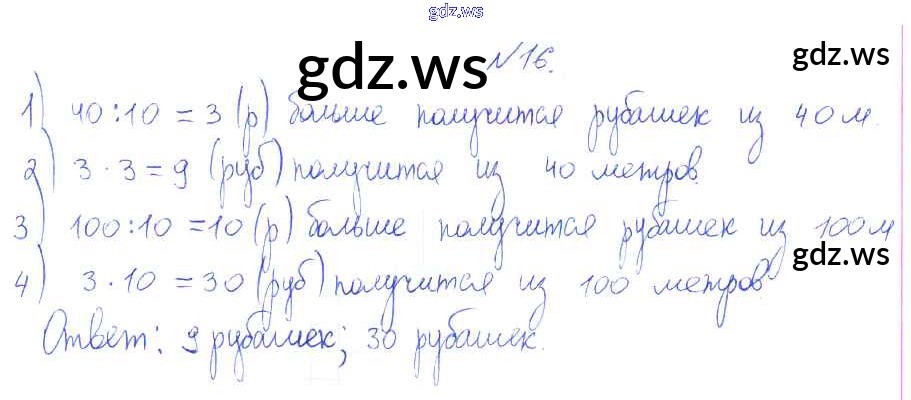 gdz.ws
№16.
gdz.ws
gdz.ws
1) 40:10 = 3 (р) больше получится рубашек из 40 м.
2) 3 · 3 = 9 (руб) получится из 40 метров.
3) 100:10 = 10 (р) больше получится рубашек из 100 м
gdz.ws
4) 3 · 10 = 30 (руб) получится из 100 метров
Ответ: 9 рубашек; 30 рубашек.